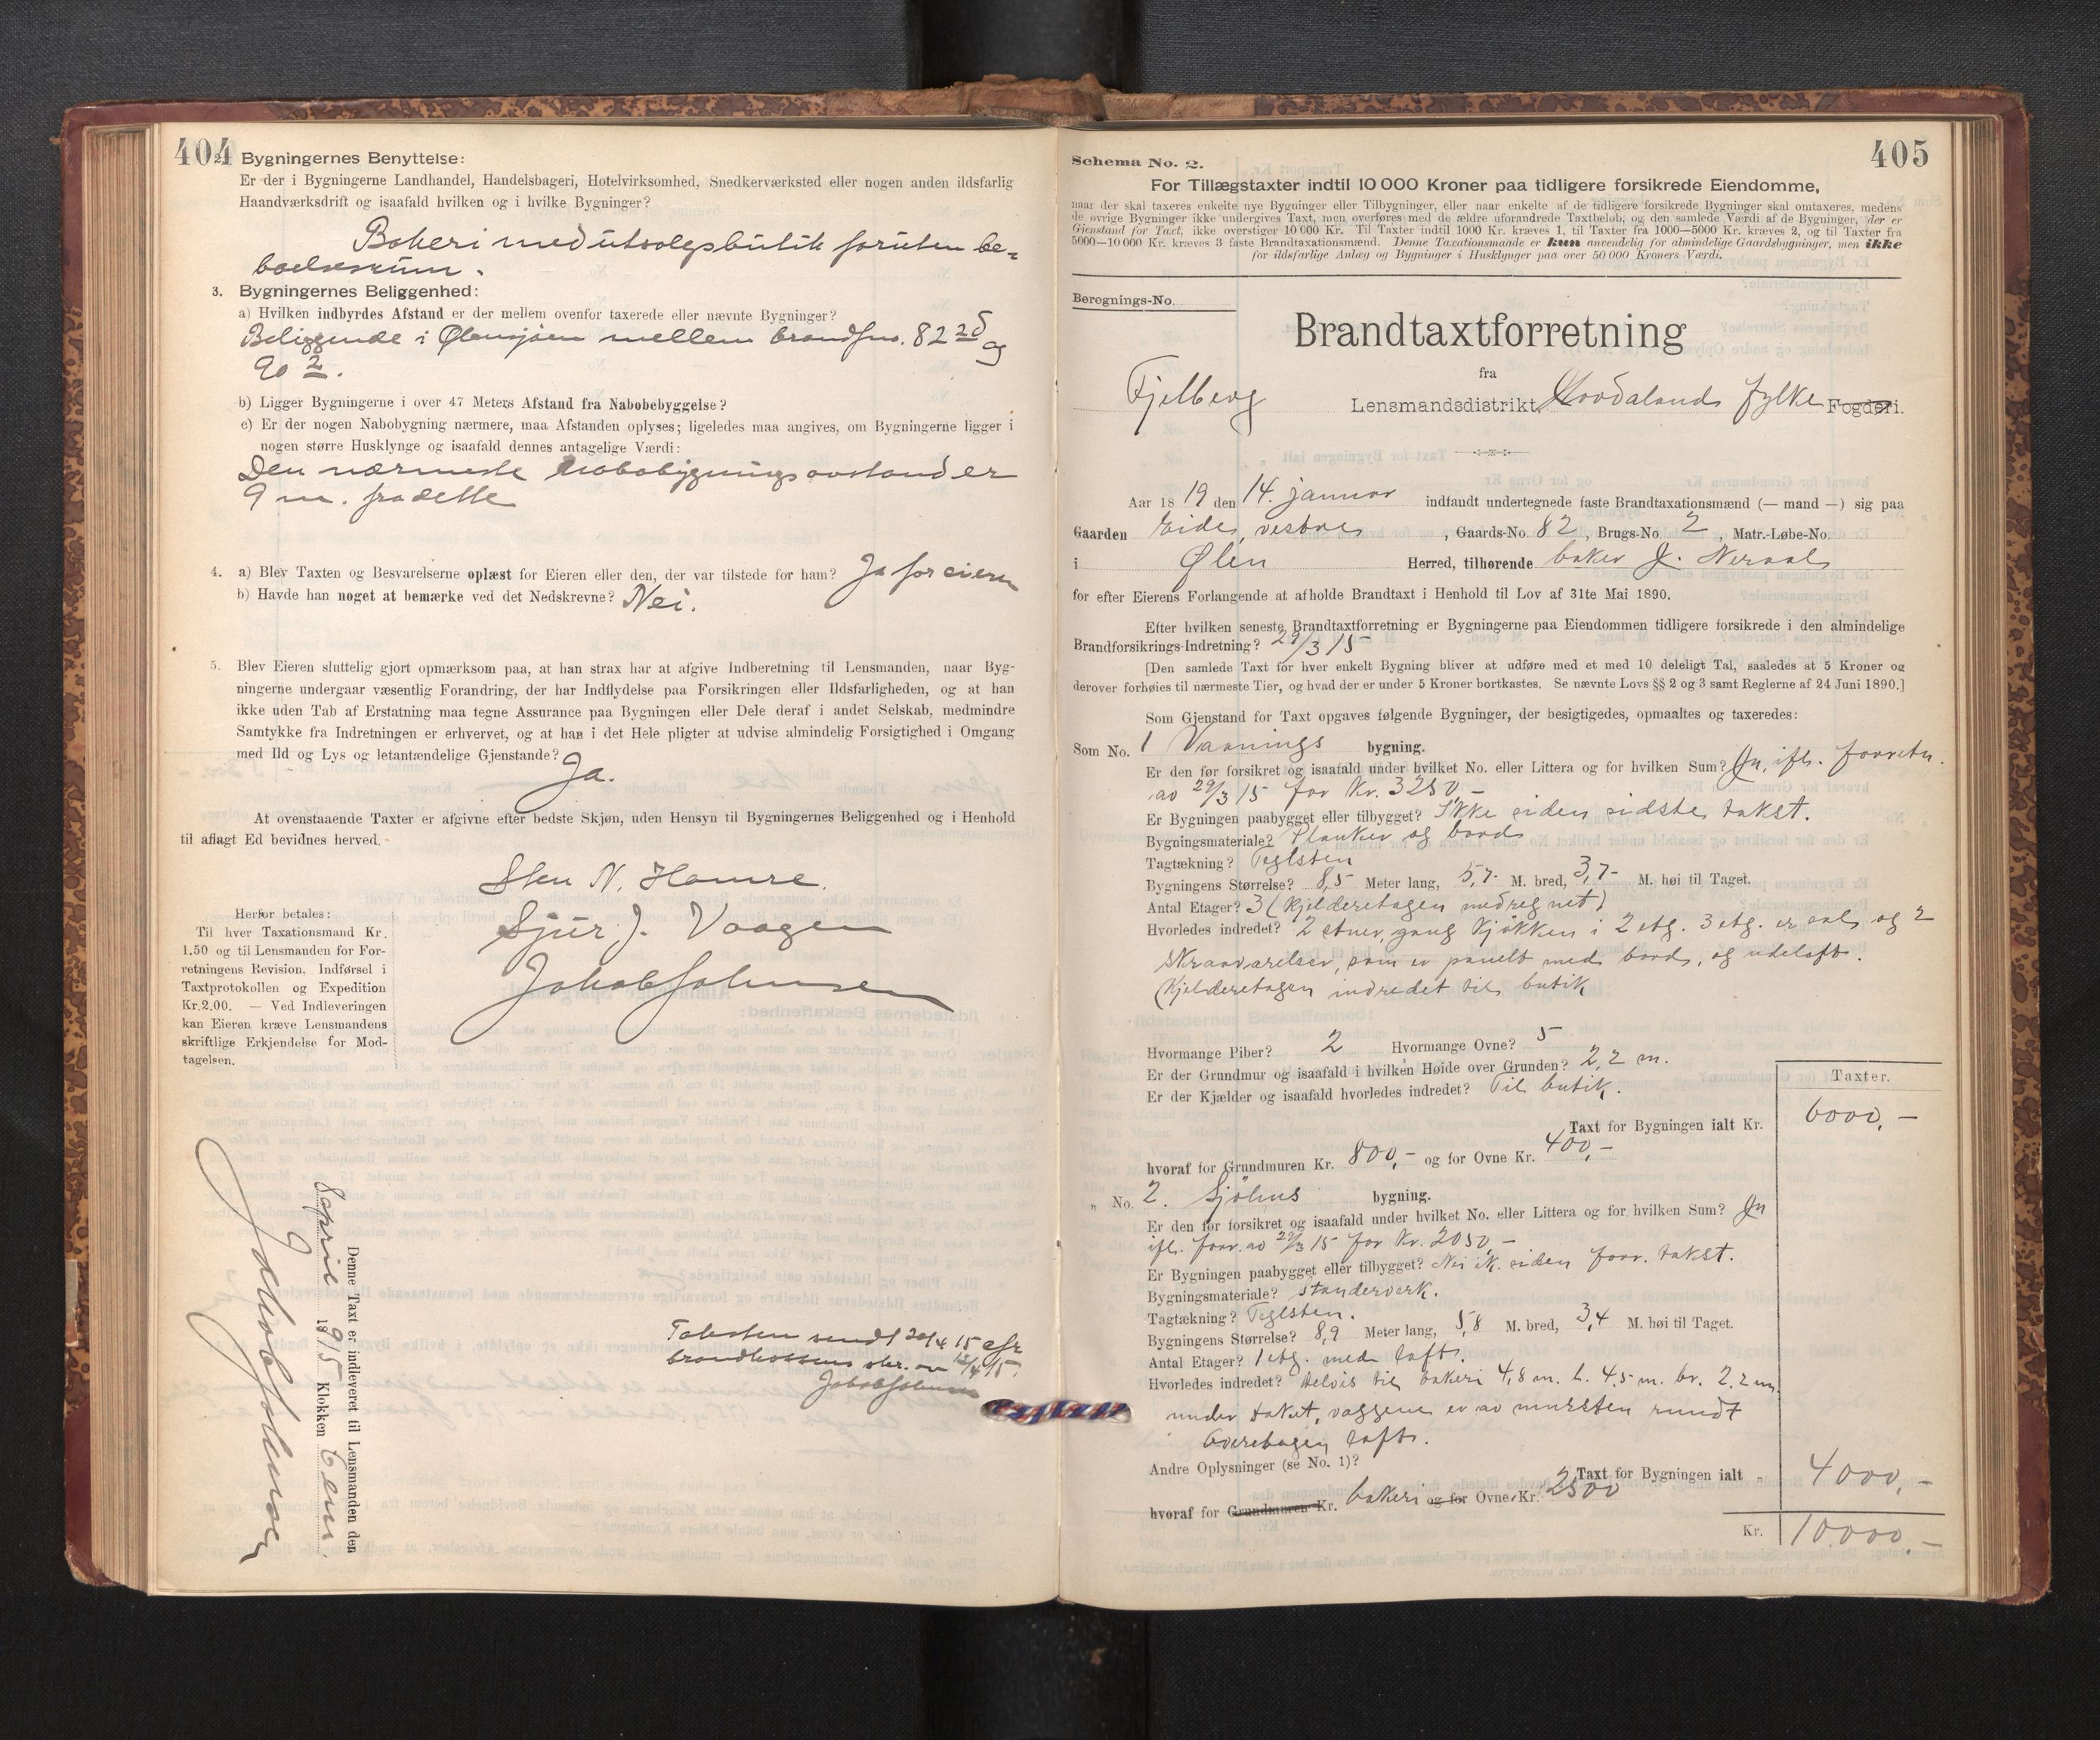 404
2. Bygningernes Benyttelse:
Er der i Bygningerne Landhandel, Handelsbageri, Hotelvirksomhed, Snedkerværksted eller nogen anden ildsfarlig
Haandværksdrift og isaafald hvilken og i hvilke Bygninger?
Bakeri med utsalgsbutik foruten be-
boelsesrum.
3. Bygningernes Beliggenhed:
a) Hvilken indbyrdes Afstand er der mellem ovenfor taxerede eller nævnte Bygninger?
Beliggende i Ølensjøen mellem brandfno. 82 25 og
90 2.
b) Ligger Bygningerne i over 47 Meters Afstand fra Nabobebyggelse?
c) Er der nogen Nabobygning nærmere, maa Afstanden oplyses; ligeledes maa angives, om Bygningerne ligger i
nogen større Husklynge og isaafald dennes antagelige Værdi:
Den nærmeste nabobygningsavstand er
9 m. fra dette
4. a) Blev Taxten og Besvarelserne oplæst for Eieren eller den, der var tilstede for ham? Ja for eieren
b) Havde han noget at bemærke ved det Nedskrevne? Nei.
5. Blev Eieren sluttelig gjort opmærksom paa, at han strax har at afgive Indberetning til Lensmanden, naar Byg-
ningerne undergaar væsentlig Forandring, der har Indflydelse paa Forsikringen eller Ildsfarligheden, og at han
ikke uden Tab af Erstatning maa tegne Assurance paa Bygningen eller Dele deraf i andet Selskab, medmindre
Samtykke fra Indretningen er erhvervet, og at han i det Hele pligter at udvise almindelig Forsigtighed i Omgang
med Ild og Lys og letantændelige Gjenstande? Ja.
At ovenstaaende Taxter er afgivne efter bedste Skjøn, uden Hensyn til Bygningernes Beliggenhed og i Henhold
til aflagt Ed bevidnes herved.
Sten N. Hamre.
Sjur J. Vaagen
Jakob Johnsen
Herfor betales:
Til hver Taxationsmand Kr.
1.50 og til Lensmanden for For-
retningens Revision, Indførsel i
Taxtprotokollen og Expedition
Kr. 2.00. — Ved Indleveringen
kan Eieren kræve Lensmandens
skriftlige Erkjendelse for Mod-
tagelsen.
Denne Taxt er indleveret til Lensmanden den
8 april 1915 Klokken 6 em.
Jakob Johnsen
Taksten sendt 20/4 15 efr
brandkassens skr. av 12/4 15.
Jakob Johnsen
405
Schema No. 2.
For Tillægstaxter indtil 10 000 Kroner paa tidligere forsikrede Eiendomme,
naar der skal taxeres enkelte nye Bygninger eller Tilbygninger, eller naar enkelte af de tidligere forsikrede Bygninger skal omtaxeres, medens
de øvrige Bygninger ikke undergives Taxt, men overføres med de ældre uforandrede Taxtbeløb, og den samlede Værdi af de Bygninger, der er
Gjenstand for Taxt, ikke overstiger 10 000 Kr. Til Taxter indtil 1000 Kr. kræves 1, til Taxter fra 1000—5000 Kr. kræves 2, og til Taxter fra
5000—10 000 Kr. kræves 3 faste Brandtaxationsmænd. Denne Taxationsmaade er kun anvendelig for almindelige Gaardsbygninger, men ikke
for ildsfarlige Anlæg og Bygninger i Husklynger paa over 50 000 Kroners Værdi.
Beregnings-No.
Brandtaxtforretning
fra
Fjelberg Lensmandsdistrikt, Hordalands fylke Fogderi.
Aar 1819 den 14. januar indfandt undertegnede faste Brandtaxationsmænd (— mand —) sig paa
Gaarden Eide, vestre, Gaards-No. 82, Brugs-No. 2, Matr.-Løbe-No.
i Ølen Herred, tilhørende baker J. Neraal
for efter Eierens Forlangende at afholde Brandtaxt i Henhold til Lov af 31te Mai 1890.
Efter hvilken seneste Brandtaxtforretning er Bygningerne paa Eiendommen tidligere forsikrede i den almindelige
Brandforsikrings-Indretning? 29/3 15
[Den samlede Taxt for hver enkelt Bygning bliver at udføre med et med 10 deleligt Tal, saaledes at 5 Kroner og
derover forhøies til nærmeste Tier, og hvad der er under 5 Kroner bortkastes. Se nævnte Lovs §§ 2 og 3 samt Reglerne af 24 Juni 1890.]
Som Gjenstand for Taxt opgaves følgende Bygninger, der besigtigedes, opmaaltes og taxeredes:
Som No. 1 Vaanings bygning.
Er den før forsikret og isaafald under hvilket No. eller Littera og for hvilken Sum? Ja, ifl. forretn.
av 29/3 15 for Kr. 3250,-
Er Bygningen paabygget eller tilbygget? Ikke siden sidste takst.
Bygningsmateriale? Planker og bord
Tagtækning? Teglsten
Bygningens Størrelse? 8,5 Meter lang, 5,7 M. bred, 3,7 M. høi til Taget.
Antal Etager? 3 (Kjelderetagen medregnet)
Hvorledes indredet? 2 stuer, gang kjøkken i 2 etg. 3 etg. er sal og 2
skraavarelser, som er panelt med bord, og udeloft.
Kjelderetagen indredet til butik
Hvormange Piber? 2 Hvormange Ovne? 5
Er der Grundmur og isaafald i hvilken Høide over Grunden? 2,2 m.
Er der Kjælder og isaafald hvorledes indredet? Til butik.
Taxter.
Taxt for Bygningen ialt Kr. 6000,-
hvoraf for Grundmuren Kr. 800,- og for Ovne Kr. 400,-
" No. 2. Sjöhus bygning.
Er den før forsikret og isaafald under hvilket No. eller Littera og for hvilken Sum? Ja
ifl. forr. av 29/3 15 for Kr. 2050,-
Er Bygningen paabygget eller tilbygget? Nei ik. siden forr. takst.
Bygningsmateriale? standerverk.
Tagtækning? Teglsten.
Bygningens Størrelse? 8,9 Meter lang, 5,8 M. bred, 3,4 M. høi til Taget.
Antal Etager? 1 etg. med loft.
Hvorledes indredet? Delvis til bakeri 4,8 m. l. 4,5 m. br. 2,2 m.
under taket, væggene er av mursten rundt
Overetagen loft.
Andre Oplysninger (se No. 1)?
Taxt for Bygningen ialt " 4000,-
hvoraf for Grundmuren Kr. bakeri og for Ovne Kr. 2500
Kr. 10000,-